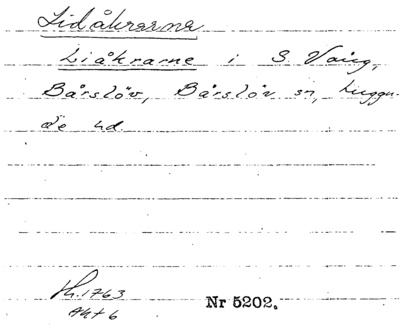 Lidåkrarna
Liåkrarne i S. Vång,
Bårslöv, Bårslöv sn, Luggu-
de hd.
Th. 1763
Akt 6
Nr 5202.